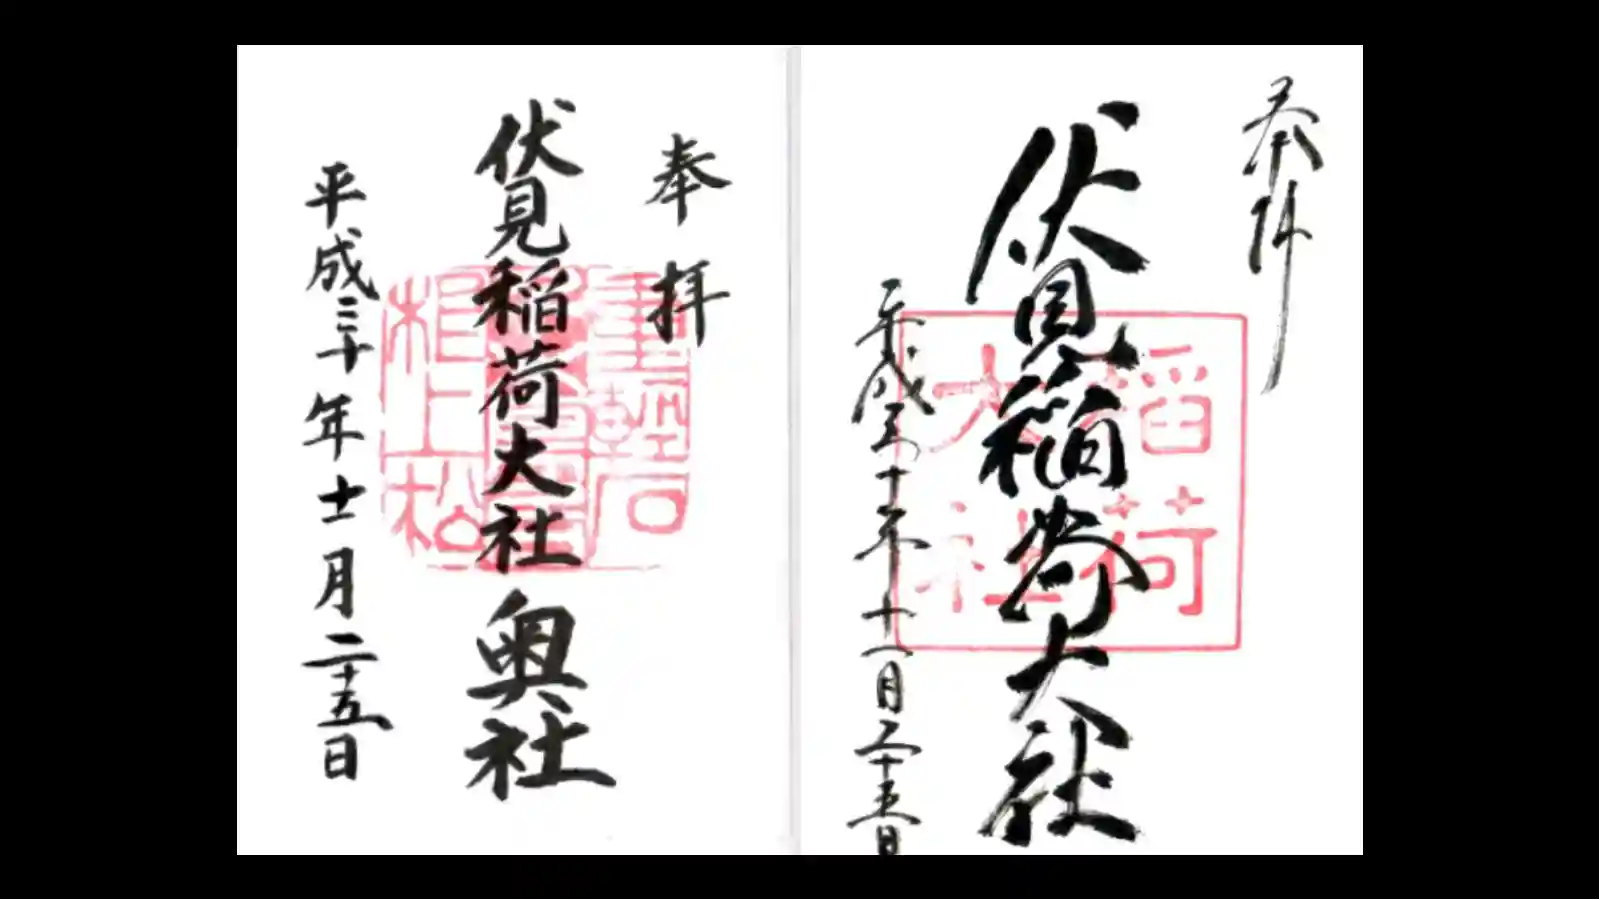 奉拝
伏見稲荷大社
稲荷大社
平成三十年十一月二十五日
奉拝
伏見稲荷大社 奥社
平成三十年十一月二十五日